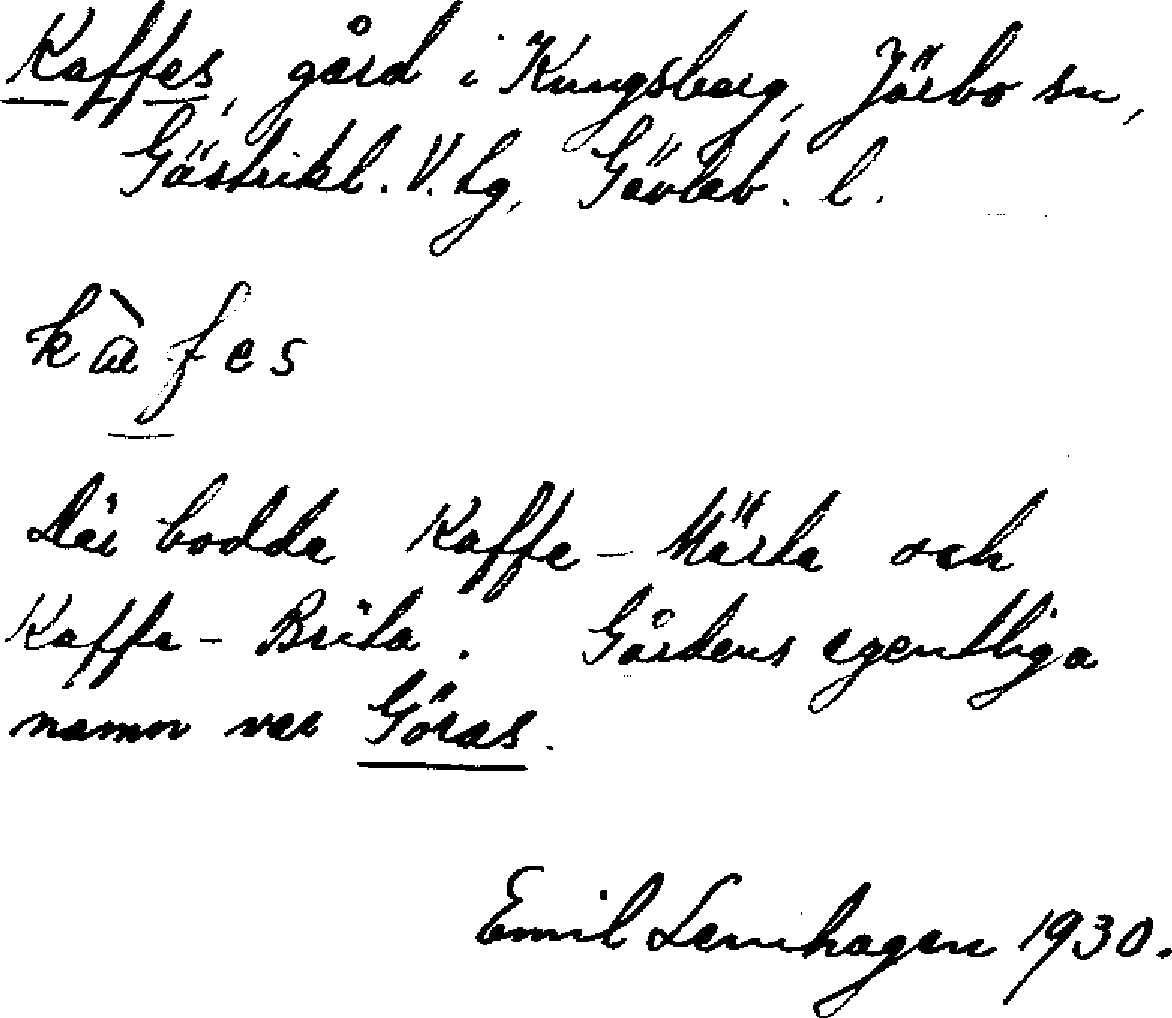 Kaffes, gård i Kungsberg, Järbo sn,
Gästrikl. V. tg, Gävleb. l.
kàfes
Där bodde Kaffe-Märta och
Kaffe-Brita. Gårdens egentliga
namn var Göras.
Emil Lennhagen 1930.